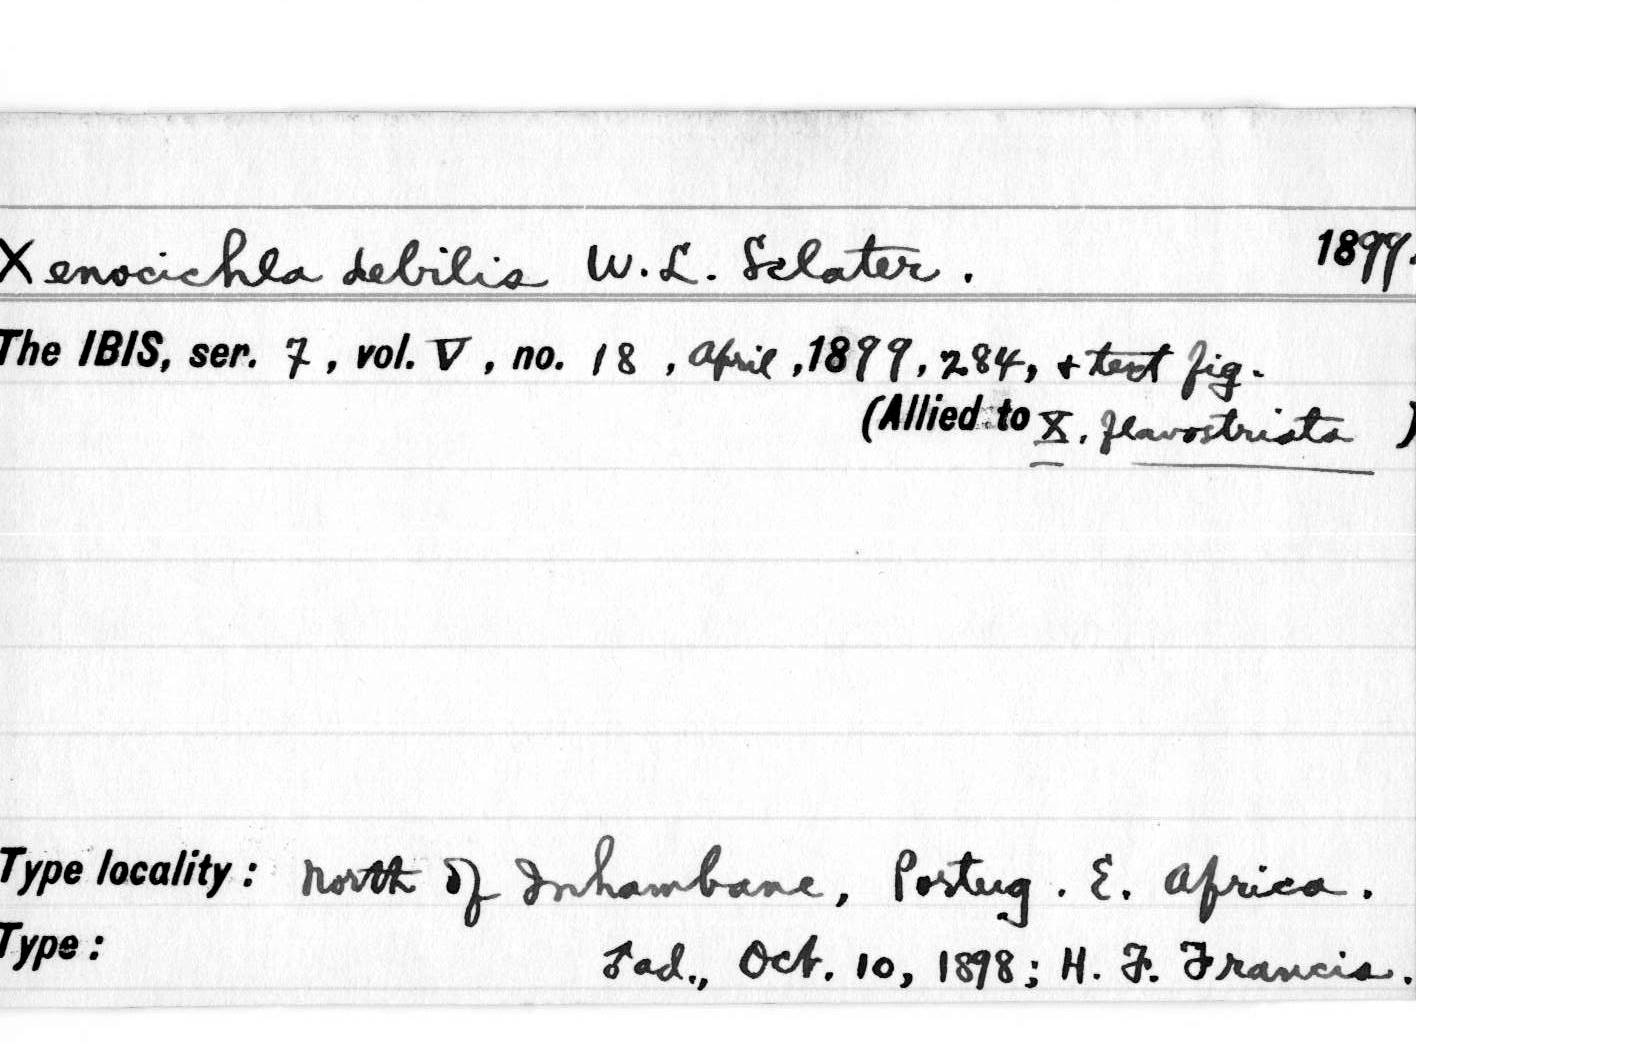 Xenocichla debilis W. L. Sclater. 1899.
The IBIS, ser. 7, vol. V, no. 18, April, 1899, 284, + text fig.
(Allied to X. flavostriata )
Type locality: North of Inhambane, Portug. E. Africa.
Type: ad., Oct. 10, 1898; H. F. Francis.